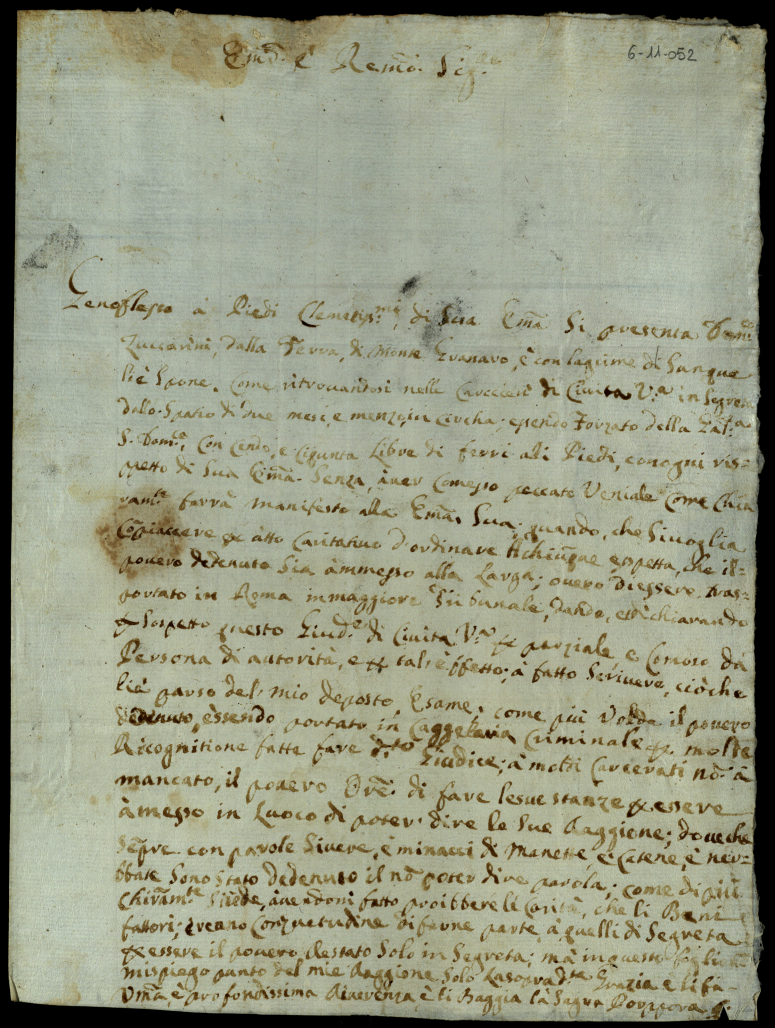 Emō. è Remō. Sig.re
6-11-052
Genoflesso à Piedi Clemetiss.mi, di Sua Emā Si presenta Dom.co
Zuccarini, dalla Terra, di Monte Granaro, è con lagrime di Sangue
li è Spone, Come ritrovandosi nelle Carcieri di Civita V.a in Segreta
dallo Spatio di due mesi, e menzo, in circha; essendo Forzato della Gal.a
S. Dom.co, Con Cendo, e Ciquanta Libre di ferri alli Piedi, con ogni ris=
petto di Sua Emā. Senza, àver Comesso peccato Veniale Come Chia
ram.te farrà manifesto alla Emā. Sua; quando, che Si voglia
Cōpiaccere per àtto Caritativo d'ordinare à chiūque espetta, che il=
povero dedenuto Sia àmmesso alla Larga; overo di essere, tras=
portato in Roma in maggiore Tribunale, dando, e dichiarando
per Sospetto questo Giud.e di Civita V.a per parziale e Conoso da
Persona di autorità, e per tal èffetto; à fatto Scrivere, ciò che
li è parso del mio deposto, Esame, come più Volda il povero
dedenuto, èssendo portato in Caggelaria Criminale per molte
Ricognitione fatte fare d.to Giudice; à molti Carcerati nō à
mancato, il povero Orē. di fare le sue stanze per essere
àmesso in Luoco di poter dire le Sue Raggione; dove che
Sēpre con parole Sivere, è minacci di Manette è Catene, è ner=
bbate Sono Stato dedenuto il nō poter dire parola; come di più
Chiram.te Si vede, avendoni fatto proibbere li Carità, che li Beni
fattori; àveano Consuetudine di farne parte, à quelli di Segreta
per essere il povero, Restato Solo in Segreta; mà in questo
mi spiego punto del mie Raggione Solo La soprad.ta Grazia e li fa=
Umā, è profondissima Riverenza è li Baggia la Sagra Porppora